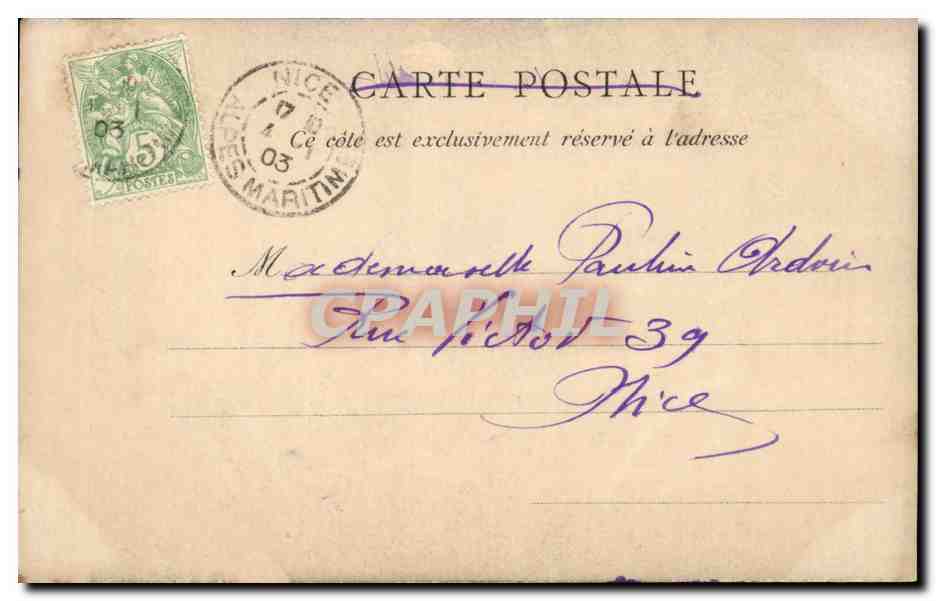 CARTE POSTALE
Ce côté est exclusivement réservé à l'adresse
NICE
17 10
4 1
03
ALPES MARITIME
03
5c
POSTES
Mademoiselle Pauline Ardoin
Rue Victor 39
Nice
CPAPHIL